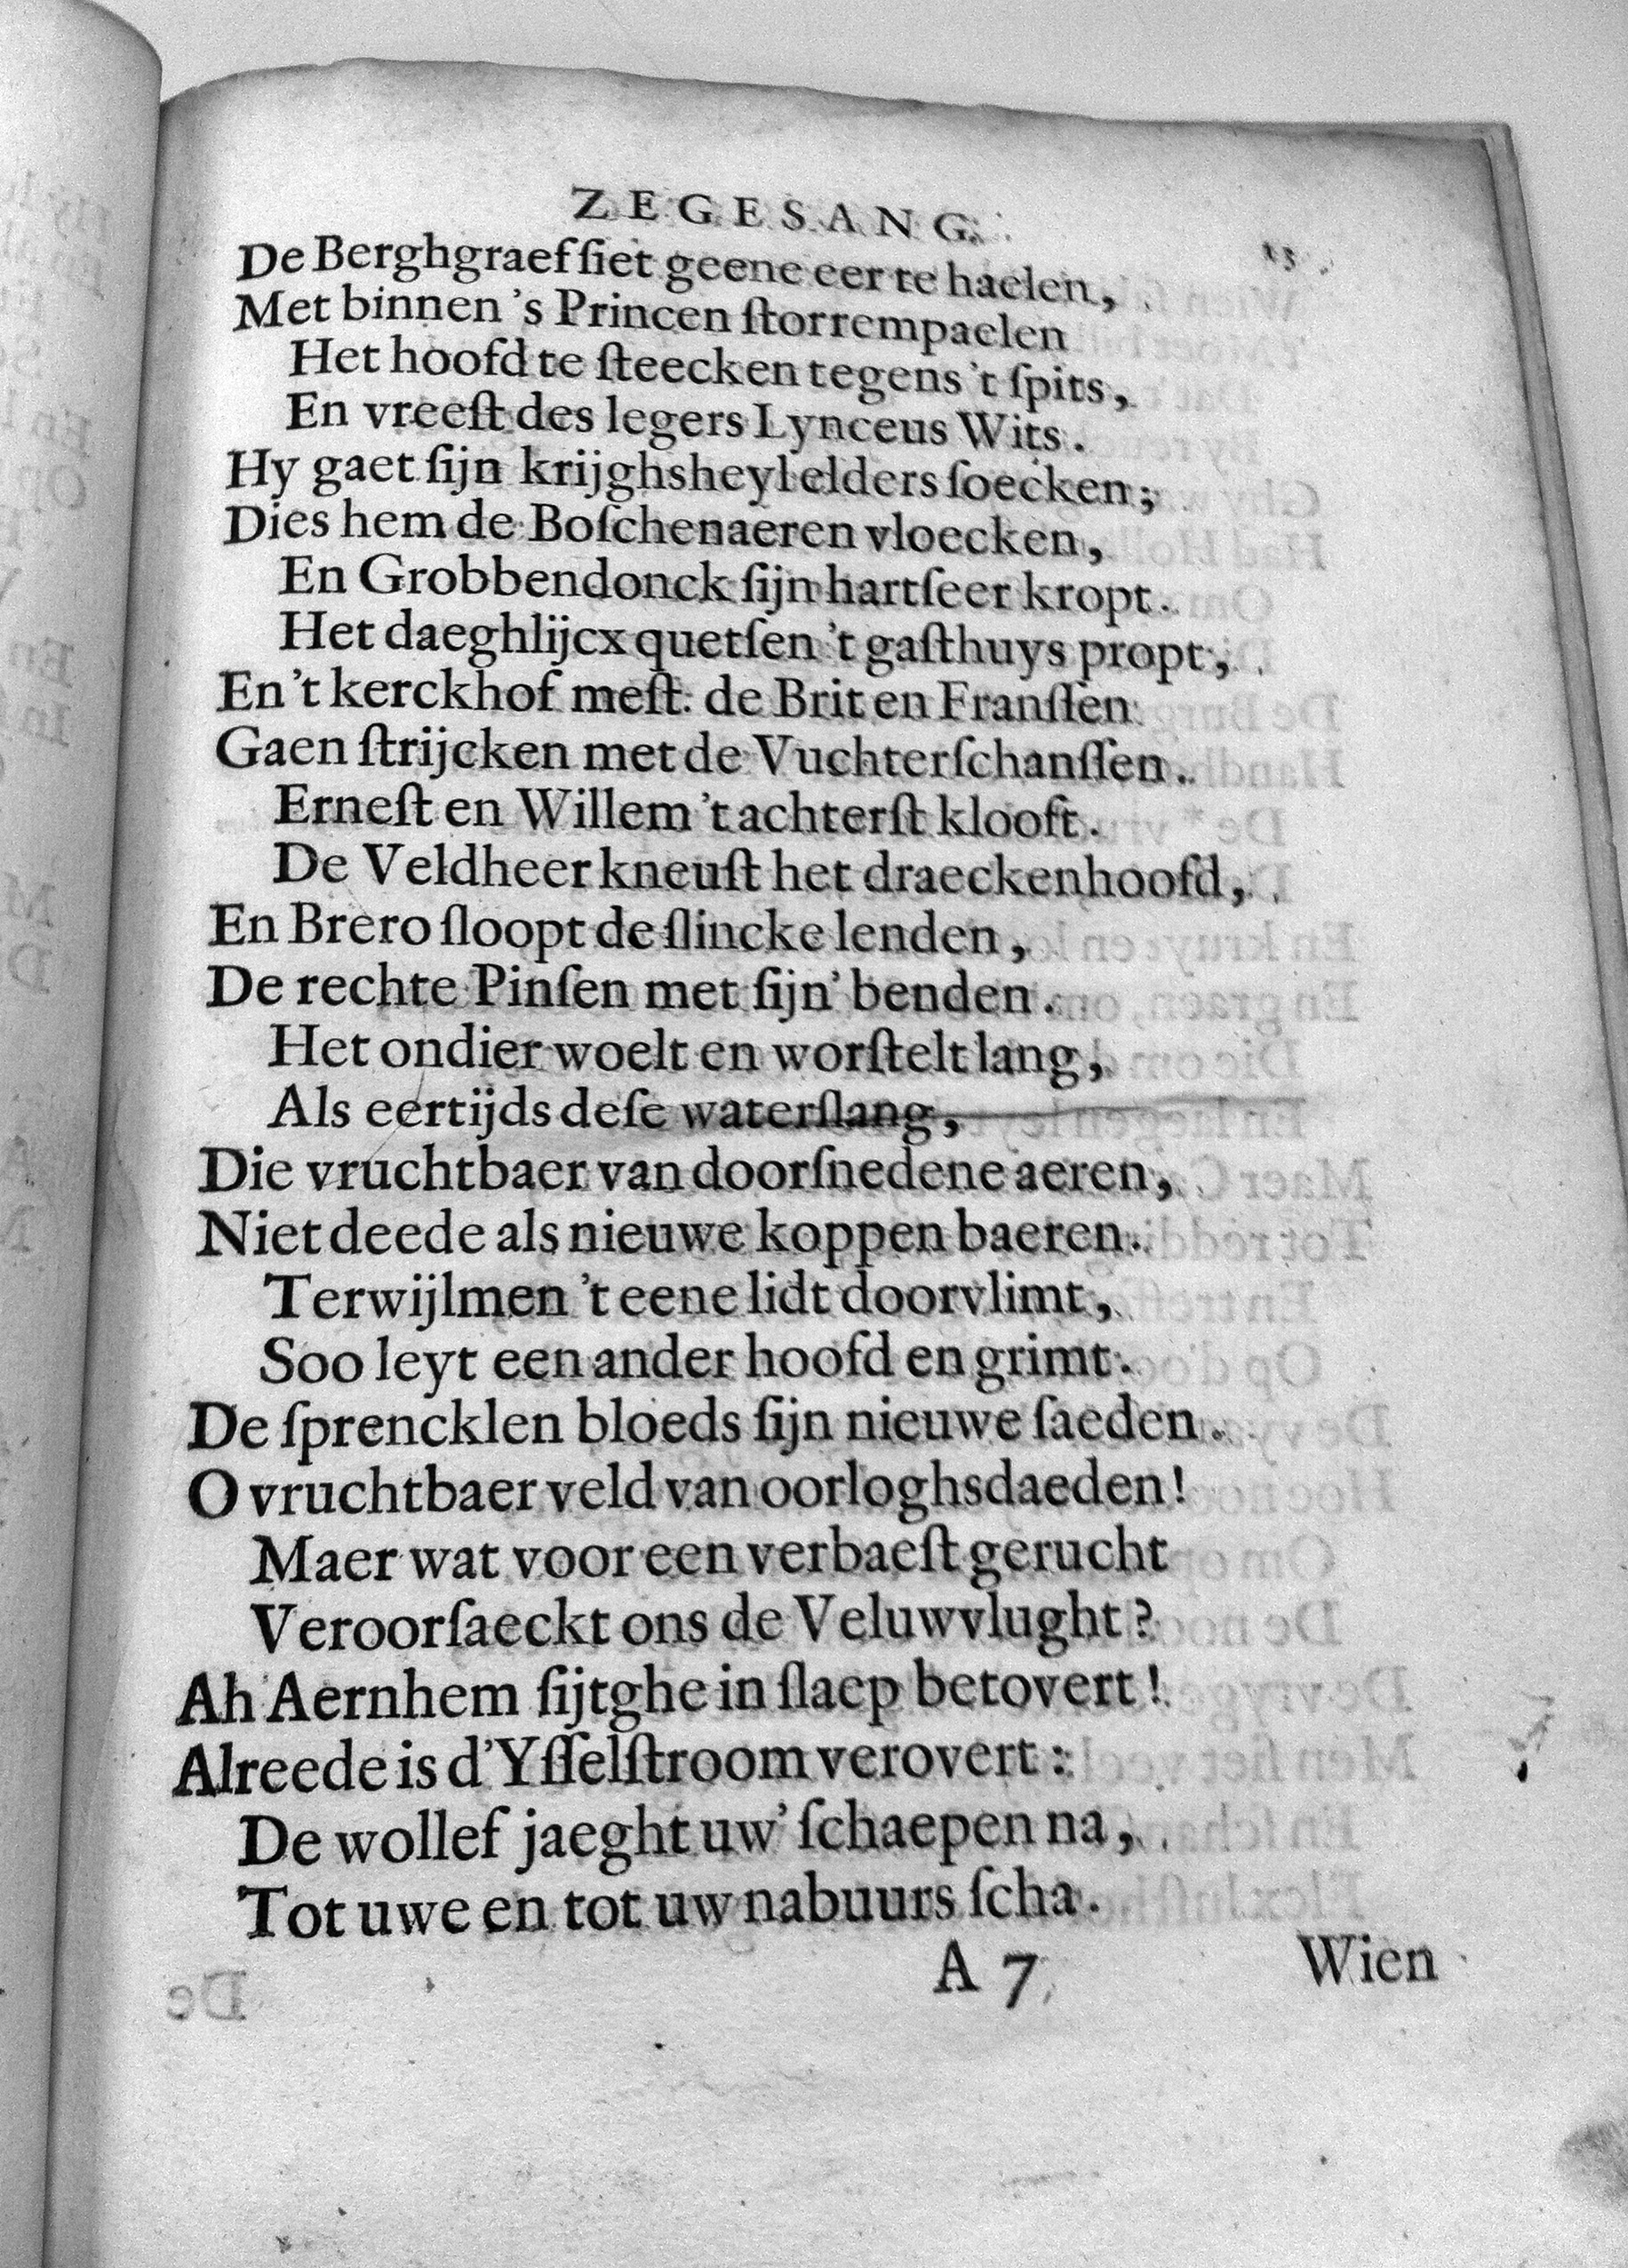 ZEGESANG. 15
De Berghgraef ſiet geene eer te haelen,
Met binnen 's Princen ſtorrempaelen
Het hoofd te ſteecken tegens 't ſpits,
En vreeſt des legers Lynceus Wits.
Hy gaet ſijn krijghsheyl elders ſoecken;
Dies hem de Boſchenaeren vloecken,
En Grobbendonck ſijn hartſeer kropt.
Het daeghlijcx quetſen 't gaſthuys propt,
En 't kerckhof meſt: de Brit en Franſſen
Gaen ſtrijcken met de Vuchterſchanſſen.
Erneſt en Willem 't achterſt klooft.
De Veldheer kneuſt het draeckenhoofd,
En Brero ſloopt de ſlincke lenden,
De rechte Pinſen met ſijn' benden.
Het ondier woelt en worſtelt lang,
Als eertijds deſe waterſlang,
Die vruchtbaer van doorſnedene aeren,
Niet deede als nieuwe koppen baeren.
Terwijlmen 't eene lidt doorvlimt,
Soo leyt een ander hoofd en grimt.
De ſprencklen bloeds ſijn nieuwe ſaeden.
O vruchtbaer veld van oorloghsdaeden!
Maer wat voor een verbaeſt gerucht
Veroorſaeckt ons de Veluwvlught?
Ah Aernhem ſijtghe in ſlaep betovert!
Alreede is d'Yſſelſtroom verovert:
De wollef jaeght uw' ſchaepen na,
Tot uwe en tot uw nabuurs ſcha.
A 7 Wien